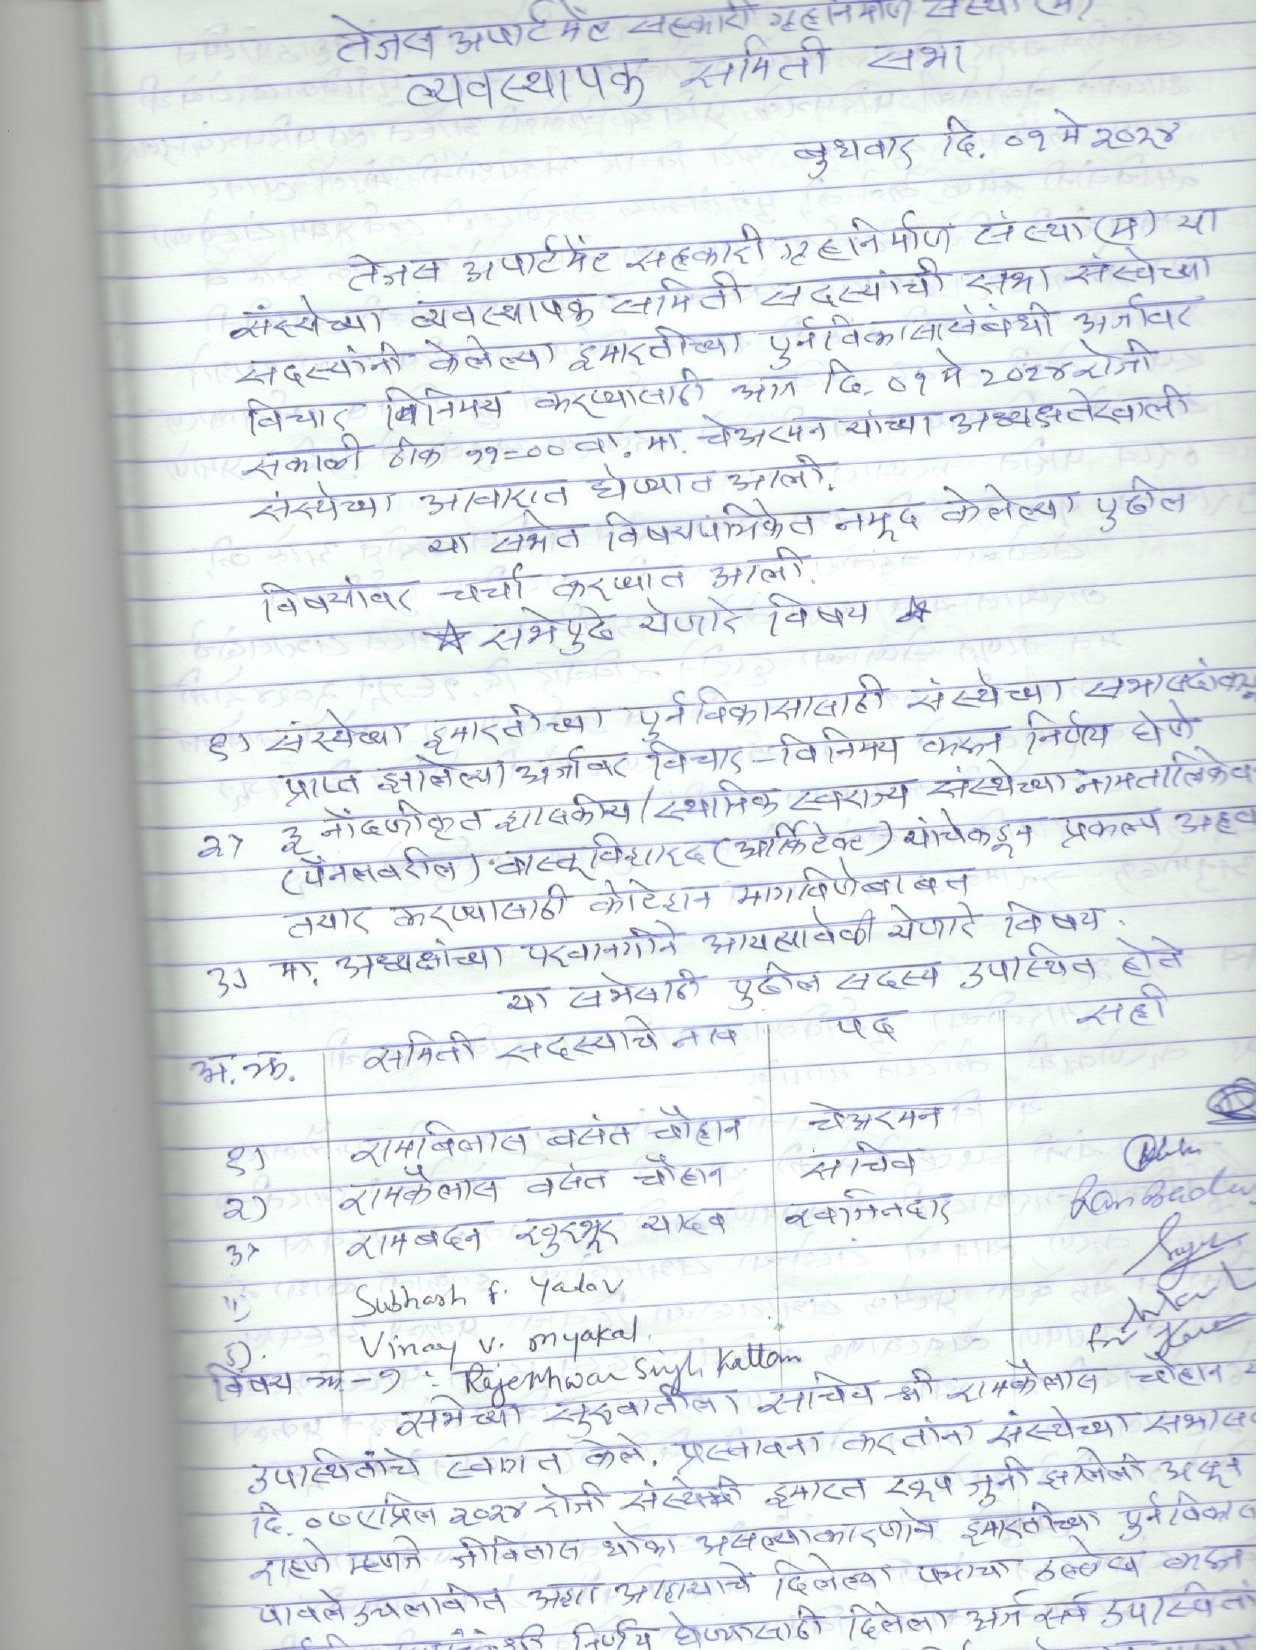 तेजस अपार्टमेंट सहकारी गृहनिर्माण संस्था (म)
व्यवस्थापक समिती सभा
बुधवार दि. ०१ मे २०२४
तेजस अपार्टमेंट सहकारी गृहनिर्माण संस्था (म) या
संस्थेच्या व्यवस्थापक समिती सदस्यांची सभा संस्थेच्या
सदस्यांनी केलेल्या इमारतीच्या पुर्नविकासासंबंधी अर्जावर
विचार विनिमय करण्यासाठी आज दि. ०१ मे २०२४ रोजी
सकाळी ठीक ११=०० वा. मा. चेअरमन यांच्या अध्यक्षतेखाली
संस्थेच्या आवारात घेण्यात आली.
या सभेत विषयपत्रिकेत नमूद केलेल्या पुढील
विषयांवर चर्चा करण्यात आली.
☆ सभेपुढे येणारे विषय ☆
१) संस्थेच्या इमारतीच्या पुर्नविकासासाठी संस्थेच्या सभासदांकडून
प्राप्त झालेल्या अर्जावर विचार-विनिमय करून निर्णय घेणे
२) ३ नोंदणीकृत शासकीय/स्थानिक स्वराज्य संस्थेच्या नामतालिकेव
(पॅनलवरील) वास्तूविशारद (आर्किटेक्ट) यांचेकडून प्रकल्प अहवा
तयार करण्यासाठी कोटेशन मागविणेबाबत
३) मा. अध्यक्षांच्या परवानगीने आयत्यावेळी येणारे विषय.
या सभेसाठी पुढील सदस्य उपस्थित होते
अ.क्र. समिती सदस्याचे नाव पद सही
१) रामबिलास वसंत चौहान चेअरमन
२) रामकैलास वसंत चौहान सचिव
३) रामबदन यादव खजिनदार Ram Badan
४) Subhash F. Yadav
५). Vinay V. Myakal.
विषय क्र-१ : Rajeshwar Singh Kattam
सभेच्या सुरुवातीला सचिव श्री रामकैलास चौहान य
उपस्थितांचे स्वागत केले. प्रस्तावना करतांना संस्थेच्या सभास
दि. ०७ एप्रिल २०२४ रोजी संस्थेची इमारत खूप जुनी झालेली असून
राहणे म्हणजे जीवितास धोका असल्याकारणाने इमारतीच्या पुर्नविकास
पावले उचलावीत अशा आशयाचे दिलेल्या पत्राचा उल्लेख करून
निर्णय घेण्यासाठी दिलेला अर्ज सर्व उपस्थितां